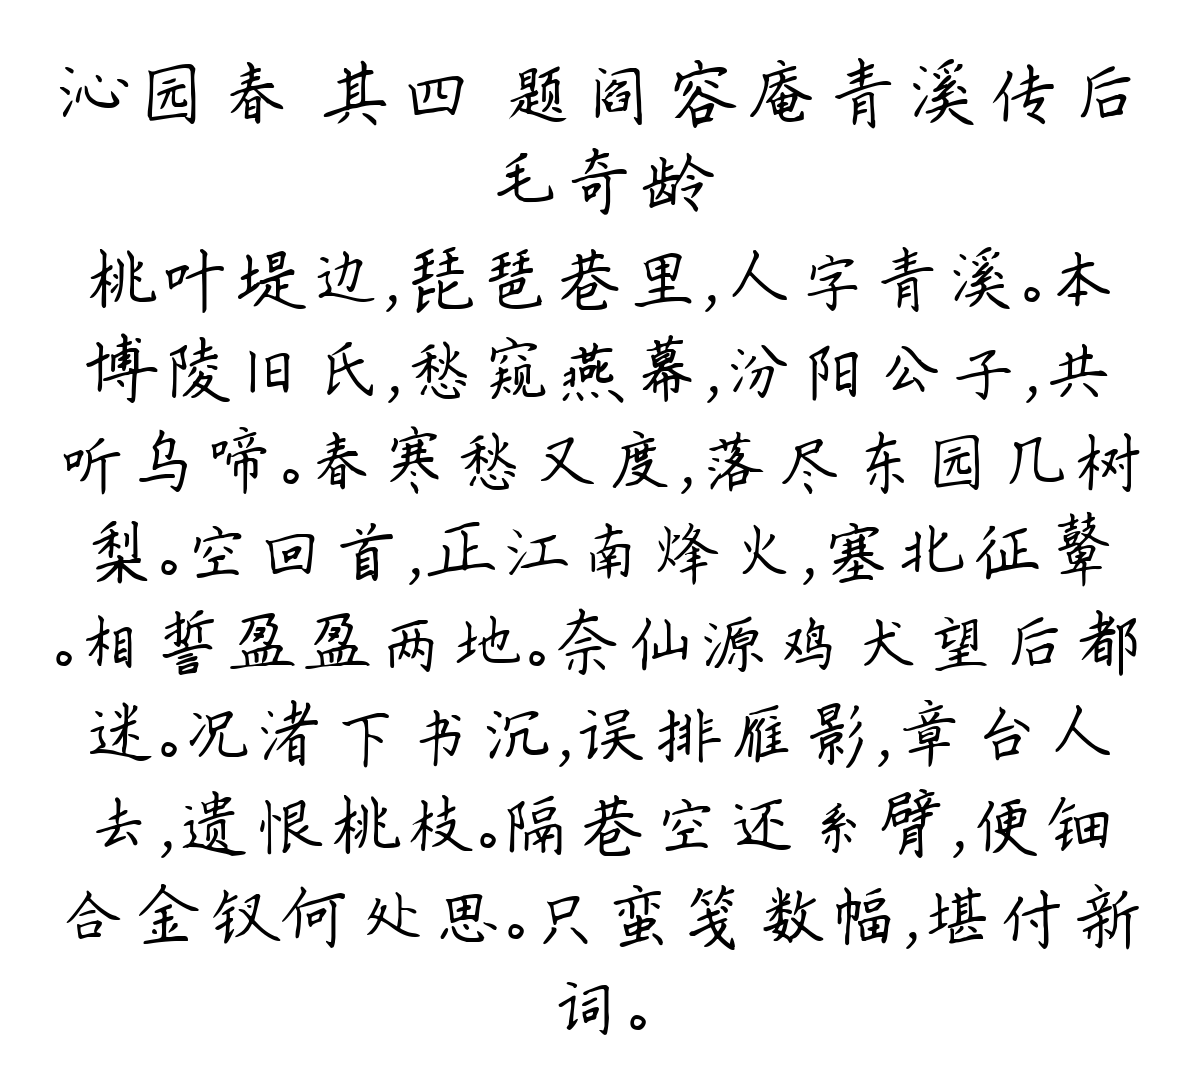 沁园春 其四 题阎容庵青溪传后
毛奇龄
桃叶堤边,琵琶巷里,人字青溪。本
博陵旧氏,愁窥燕幕,汾阳公子,共
听乌啼。春寒愁又度,落尽东园几树
梨。空回首,正江南烽火,塞北征鼙
。相誓盈盈两地。奈仙源鸡犬望后都
迷。况渚下书沉,误排雁影,章台人
去,遗恨桃枝。隔巷空还系臂,便钿
合金钗何处思。只蛮笺数幅,堪付新
词。